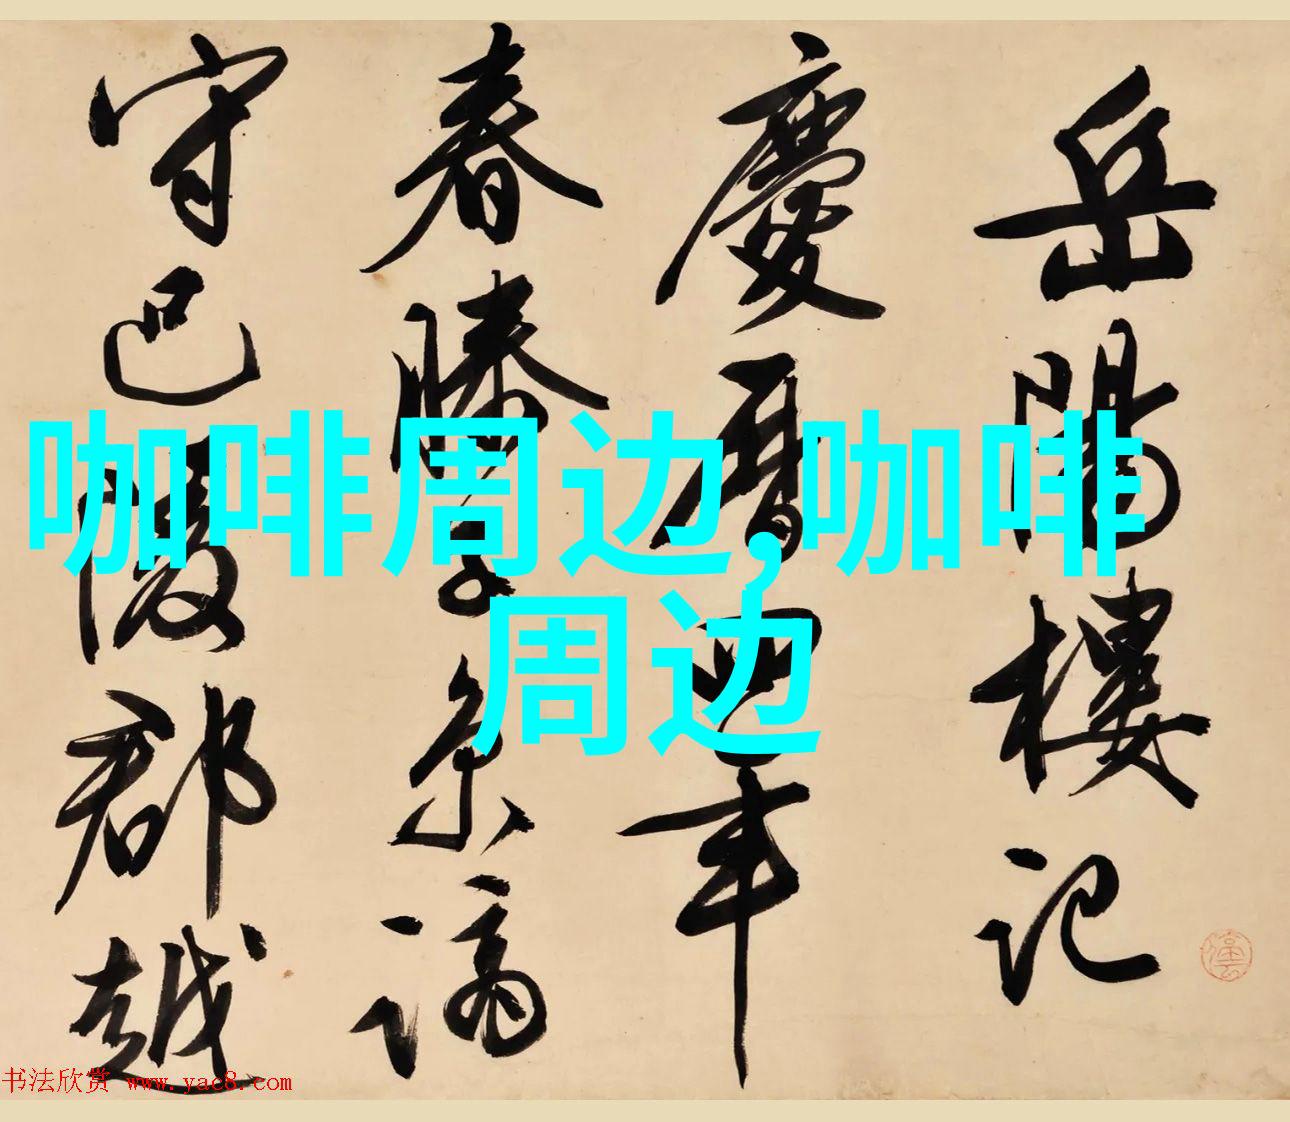 岳陽樓記
慶曆四年
春滕子京謫
守巴陵郡越
咖啡周边,咖啡
周边
书法欣赏 www.yac8.com